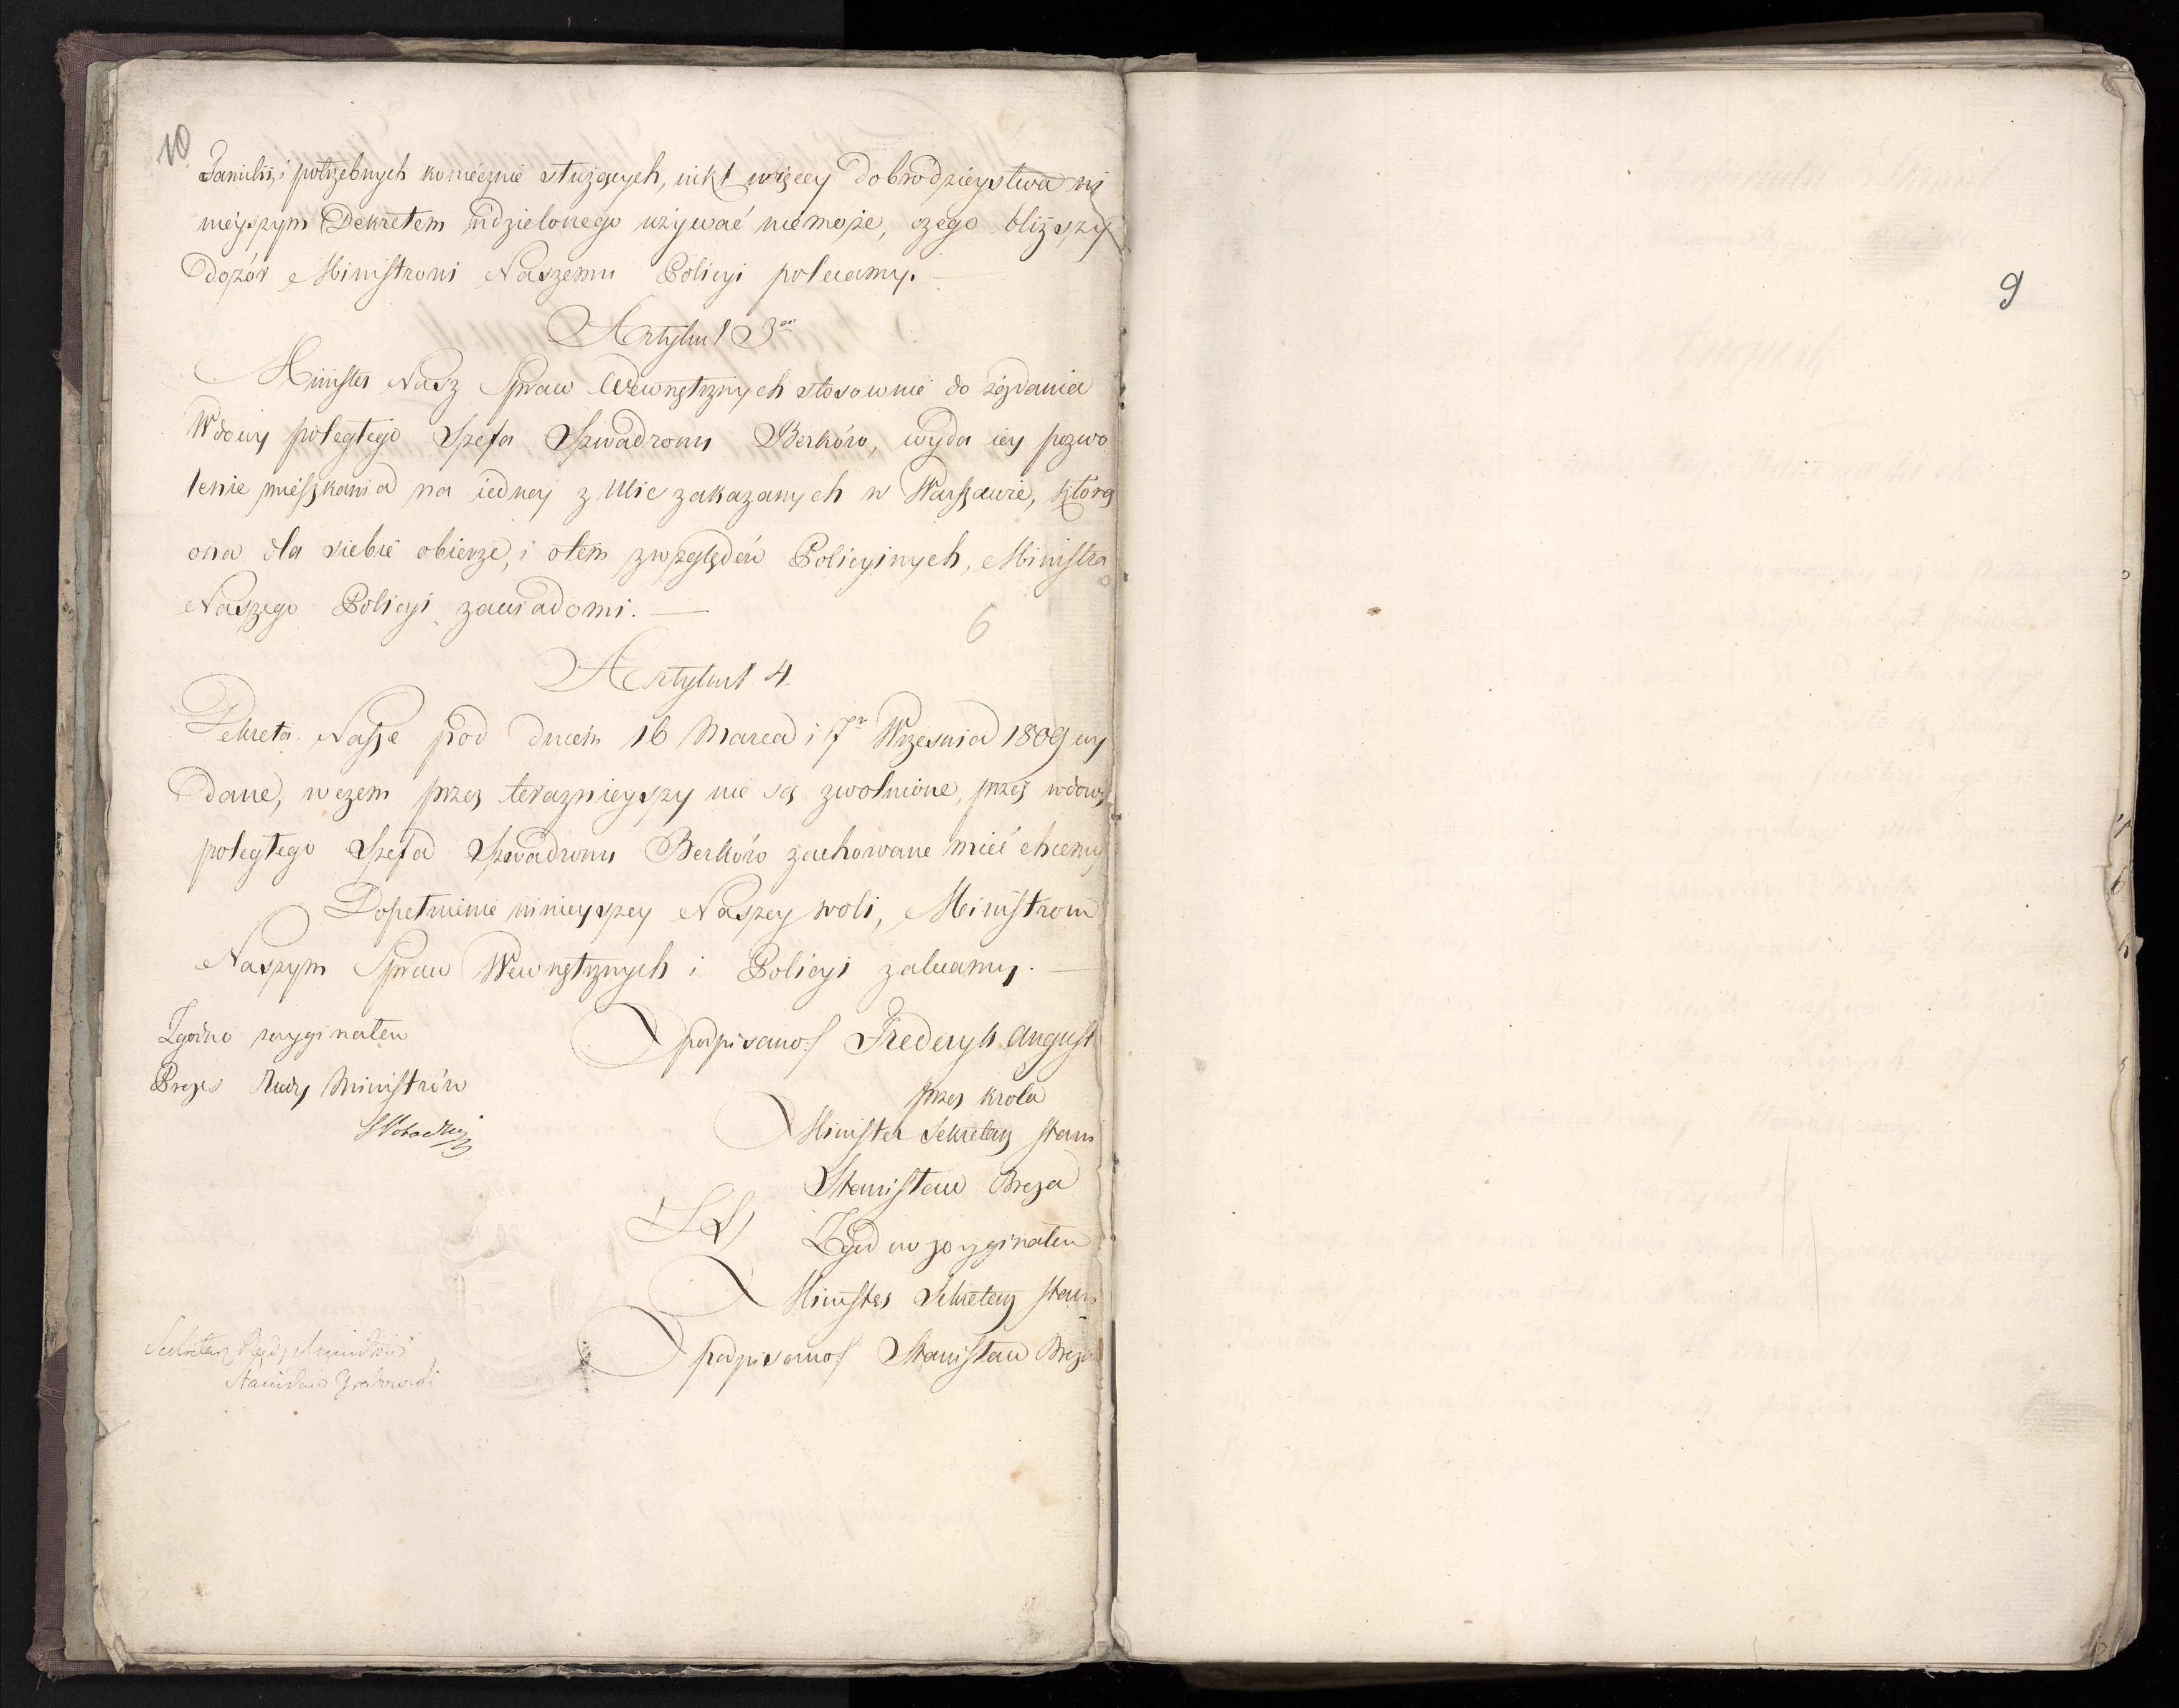 10
Familii, i potrzebnych koniecznie służących, nikt więcey dobrodzieystwa ni
nieyszym Dekretem udzielonego używać niemoże, czego bliższy
dozór Ministrowi Naszemu Policyi polecamy. —
Artykuł 3
Minister Nasz Spraw Wewnętrznych stosownie do żądania
Wdowy poległego Szefa Szwadronu Berków, wyda iey pozwo
lenie mieszkania na iedney z Ulic zakazanych w Warszawie, którą
ona dla siebie obierze, i otem zwzględów Policyinych, Ministra
Naszego Policyi zawiadomi. —
6
Artykuł 4.
Dekreta Nasze pod dniem 16 Marca i 7 Wrzesnia 1809 wy
dane, wczem przez teraznieyszy nie są zwolnione, przez wdowę
poległego Szefa Szwadronu Berków zachowane mieć chcemy
Dopełnienie ninieyszey Naszey woli, Ministrom
Naszym Spraw Wewnętrznych i Policyi zalecamy. —
Zgodno zoryginałem
Prezes Rady Ministrów
podpisano/ Frederyk August
przez Krola
Minister Sekretarz Stanu
Stanisław Breza
LS)
Zgodno zoryginałem
Minister Sekretarz Stanu
podpisano/ Stanisław Breza
Sekretarz Rady Ministrów
Stanisław Grabowski
9